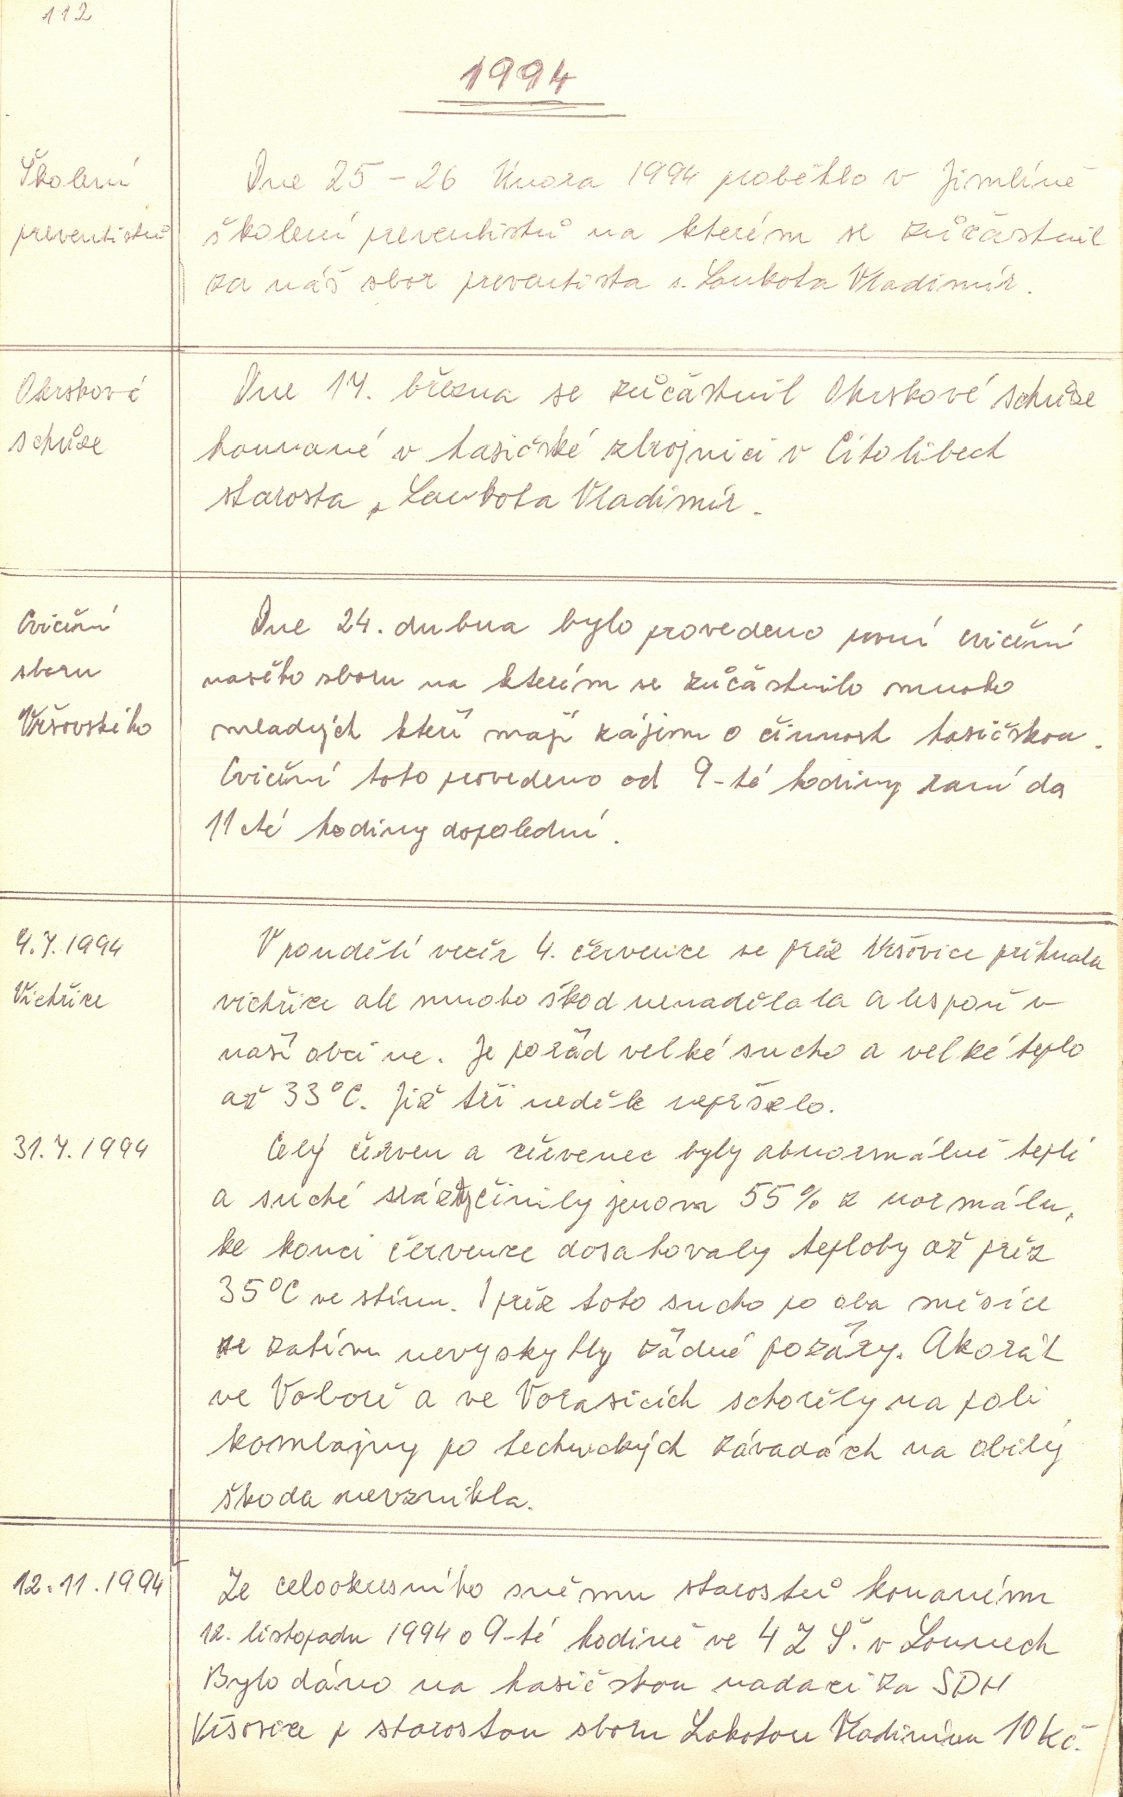 112
1994
Školení
preventistů
Dne 25 - 26 Února 1994 proběhlo v Jimlíně
školení preventistů na kterém se zůčastnil
za náš sbor preventista s. Loukota Vladimír.
Okrskové
schůze
Dne 17. března se zůčástnil Okrskové schůze
konané v hasičské zbrojnici v Citolibech
starosta p. Loukota Vladimír.
Cvičení
sboru
Vršovského
Dne 24. dubna bylo provedeno první cvičení
našeho sboru na kterém se zůčástnilo mnoho
mladých kteří mají zájem o činnost hasičskou.
Cvičení toto provedeno od 9-té hodiny raní do
11 cté hodiny dopolední.
4.7.1994
Vichřice
V pondělí večír 4. července se přéz Vršovice přihnala
vichřice ale mnoho škod nenadělala alespoň v
naší obci ne. Je pořád velké sucho a velké teplo
až 33°C. Již tři neděle nepršelo.
31.7.1994
Celý červen a červenec byly abnormálně teplí
a suché srážky činily jenom 55% z normálu,
ke konci července dosahovaly teploby až přéz
35°C ve stínu. I přéz toto sucho po oba měsíce
se zatím nevyskytly žádné požáry. Akorát
ve Voboře a ve Vorasicích schořely na poli
kombajny po technických závadách na obilý
škoda nevznikla.
12.11.1994
Ze celookresního sněmu starostů konaném
12. listopadu 1994 o 9-té hodině ve 4 Z Š. v Lounech
Bylo dáno na hasičskou nadaci za SDH
Vršovice p starostou sboru Lokotou Vladimírem 10 Kč.